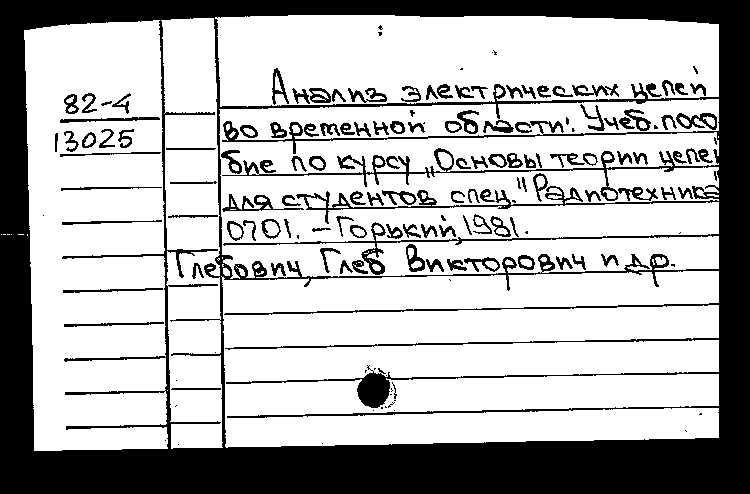 82-4
13025
Анализ электрических цепей
во временной области: Учеб. посо
бие по курсу „Основы теории цепей"
для студентов спец. "Радиотехника"
0701. – Горький, 1981.
Глебович, Глеб Викторович и др.